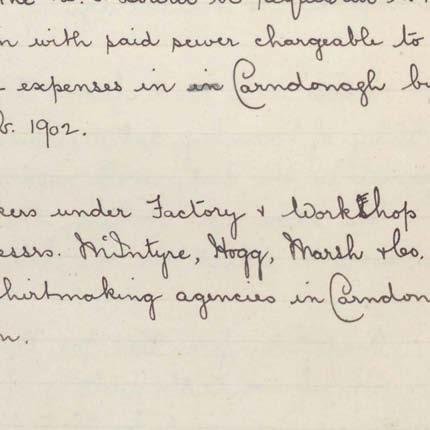 n with said sewer chargeable to
expenses in in Carndonagh by
b. 1902.
kers under Factory & Workshop
essrs. McIntyre, Hogg, Marsh & Co.
hirtmaking agencies in Carndon
n.